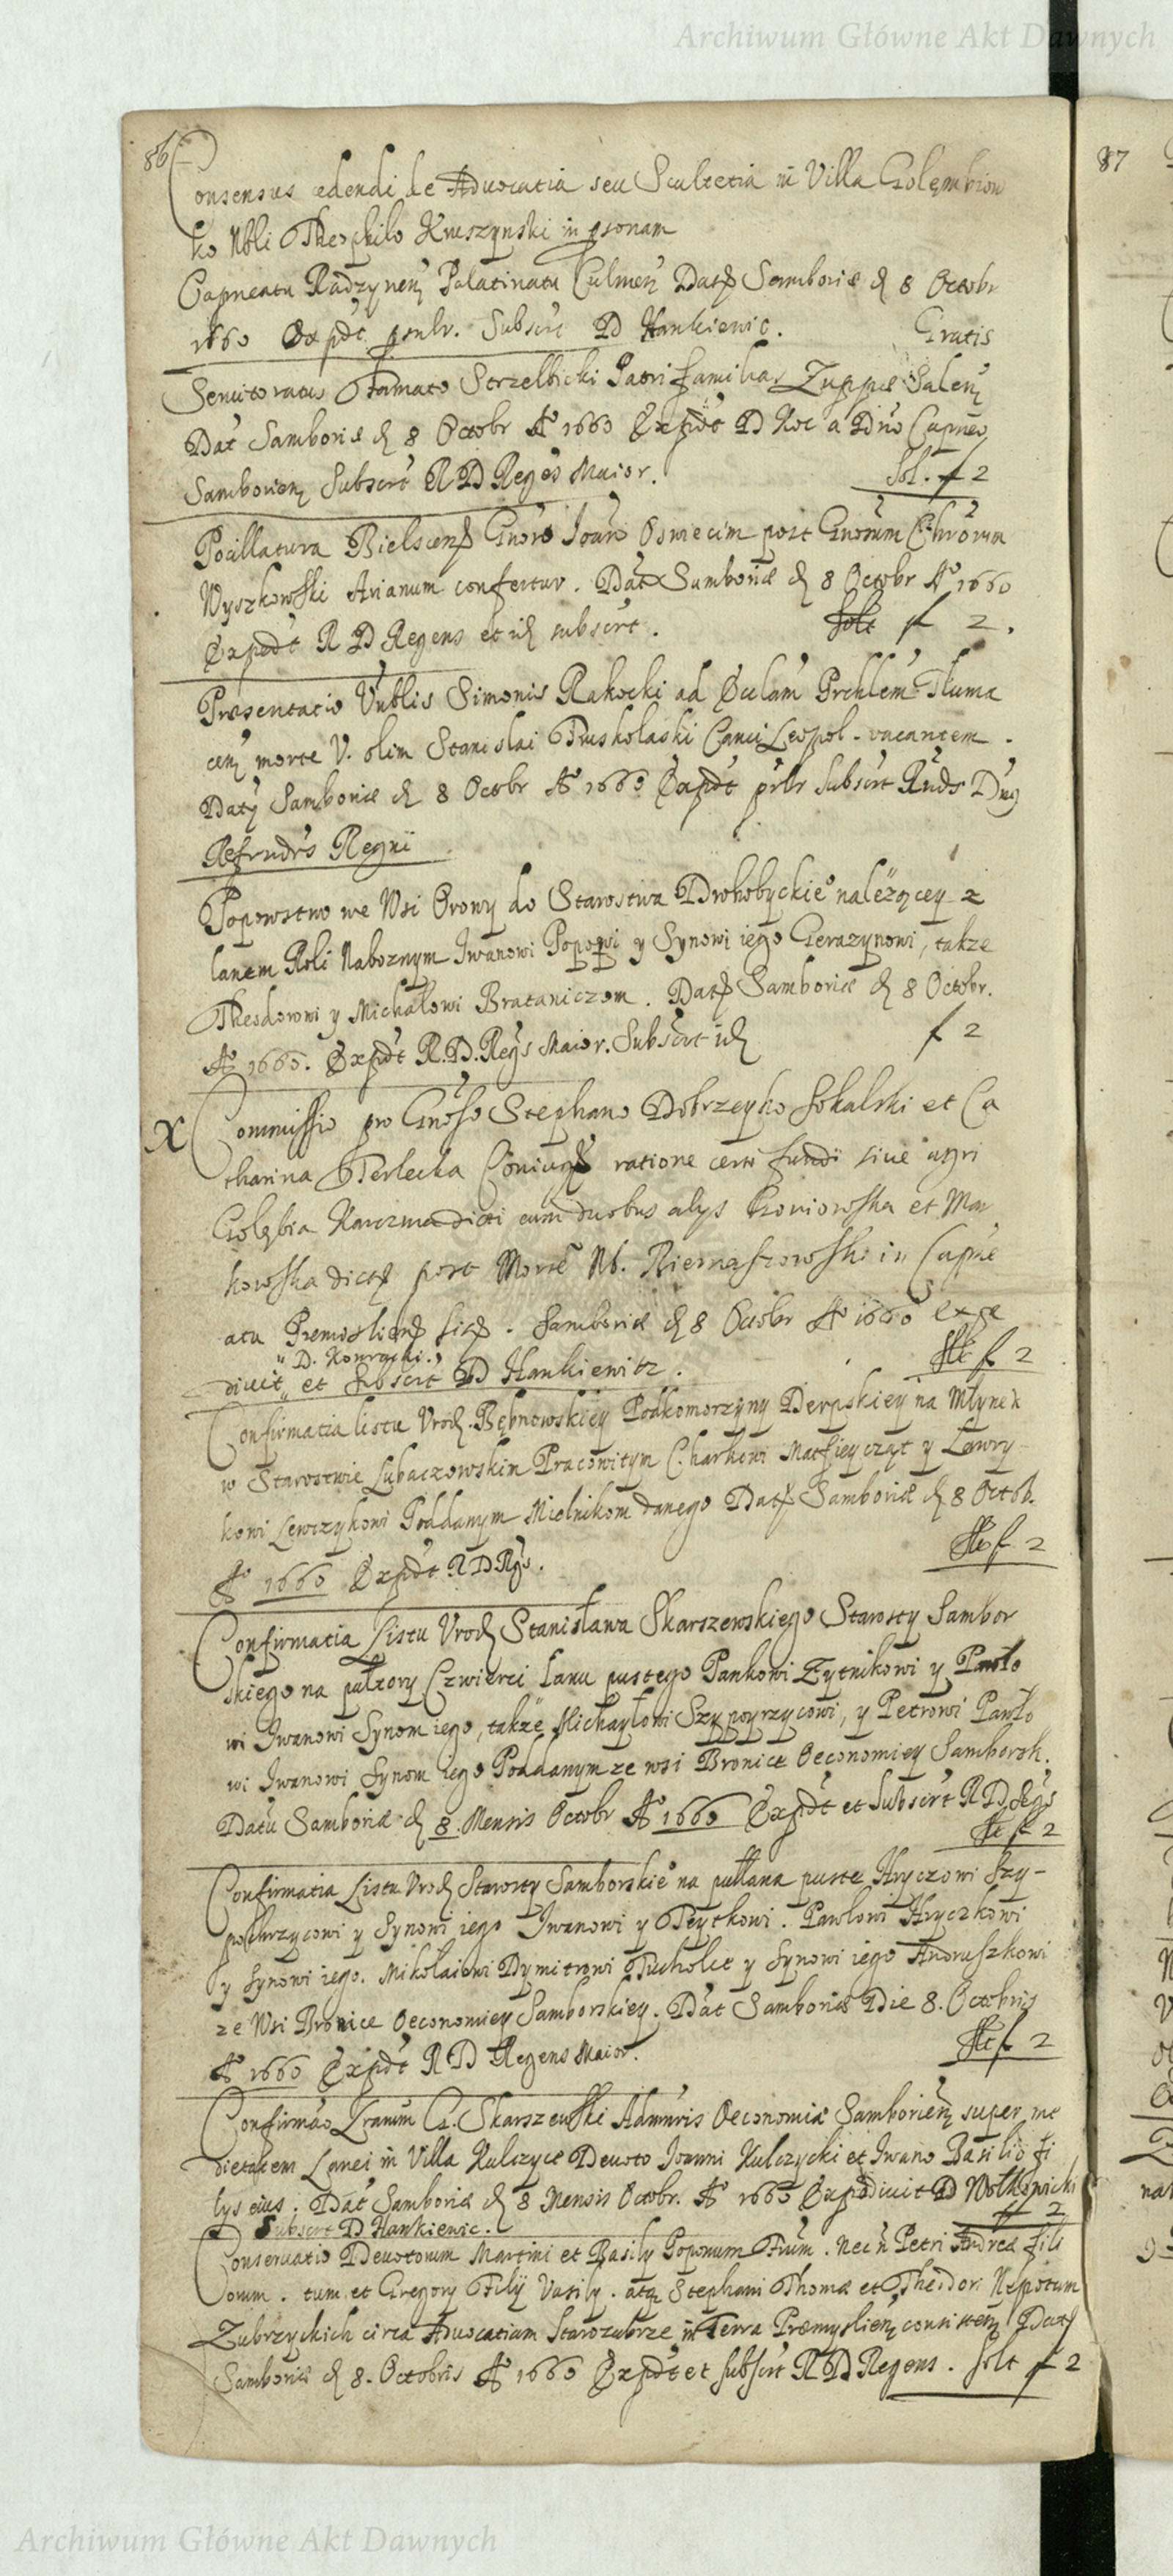 Archiwum Główne Akt Dawnych
86
87
Consensus cedendi de Advocatia seu Scultetia in Villa Golembiow
ko Nbli Theophilo Kruszynski in psonam
Capneatu Radzynen Palatinatu Culmen Dat Samboriæ d 8 Octobr
1660 Expdt psnlr. Subscrt D Hankiewic. Gratis
Servitoratus Famato Strzelbicki Patri familias Zuppæ Salen
Dat Samboriæ d 8 Octobr Ao 1660 Expdt D Koc a Dno Capneo
Samborien Subscrt R D Regēs Maior. Sol. f 2
Pocillatura Bielscen Gnoro Ioan Osmecim post Gnorum Chrōnia
Wyszkowski Arianum confertur. Dat Samboriæ d 8 Octobr Ao 1660
Expedt R D Regens et id subscrt. solt f 2.
Præsentatio Vnblis Simonis Rakocki ad Ecclam Prchlem Tłuma
cen morte V. olim Stanislai Pruskolaski Canci Leopol. vacantem.
Dat Samboriæ d 8 Octobr Ao 1660 Expdt prlr Subscrt Rnds Dns
Refrndrs Regni
Popowstwo we Wsi Orowy do Starostwa Drohobyckieo należącey z
lanem Roli Naboznym Iwanowi Popowi y Synowi iego Gerazynowi, takze
Theodorowi y Michałowi Brataniczom. Dat Samboriæ d 8 Octobr.
Ao 1660. Expdt R. D. Regs Maior. Subscrt id f 2
X Commissio pro Gnoso Stephano Dobrzeyko Sokalski et Ca
tharina Terlecka Coniugs ratione certi fundi siue agri
Gołębia Karczma dicti cum duobus alys Broniowska et Ma
kowska dict post Morte Nb. Biernaszowski in Capne
atu Premislien sit. Samboriæ d 8 Octobr Ao 1660 expe
" D. Konracki."
divit " et subscrt D Hankiewitz. Slt f 2
Confirmatia listu Vrod. Bębnowskiey Podkomorzyny Derpskiey na Młynek
w Starostwie Lubaczowskim Pracowitym Charkowi Matfieycząt y Ławry
kowi Lewczykowi Poddanym Mielnikom danego Dat Samboriæ d 8 Octob.
Ao 1660 Expdt R D Rgs. Slt f 2
Confirmatia Listu Vrod Stanisława Skarszewskiego Starosty Sambor
skiego na pułtory Czwierci Łanu pustego Pankowi Zytnikowi y Pawło
wi Iwanowi Synom iego, także Michayłowi Szypoyrzycowi, y Petrowi Pawło
wi Iwanowi Synom iego Poddanym ze wsi Bronice Oeconomiey Samborsk.
Datu Samboriæ d 8. Mensis Octobr Ao 1660 Expdt et Subscrt R D Regs
Slt f 2
Confirmatia Listu Vrod Starosty Samborskieo na pułłana puste Hryczowi Szy-
poyrzycowi y Synowi iego Iwanowi y Feytkowi. Pawłowi Hryczkowi
y Synowi iego. Mikołaiowi Dymitrowi Pucholet y Synowi iego Andruszkowi
ze Wsi Bronice Oeconomiey Samborskiey. Dat Samboriæ Die 8. Octobris
Ao 1660 Expdt R D Regens Maior. Slt f 2
Confirmao Lrarum G. Skarszewski Admnris Oeconomiæ Samborien super me
dietatem Lanei in Villa Kulczyce Devoto Ioanni Kulczycki et Iwano Basilio fi
lys eius. Dat Samboriæ d 8 Mensis Octobr. Ao 1660 Expedivit D Wolkonicki
Subscrt D Hankiewic. f 2
Conservatio Devotorum Martini et Basily Poponum Frum. nec n Petri Andreæ fili
orum. tum et Gregory Filij Vasily. atq Stephani Thomæ et Theodori Nepotum
Zubrzyckich circa Advocatiam Starozubrze in Terra Præmyslien consisten Dat
Samboriæ d 8. Octobris Ao 1660 Expdt et subscrt R D Regens. solt f 2
Archiwum Główne Akt Dawnych